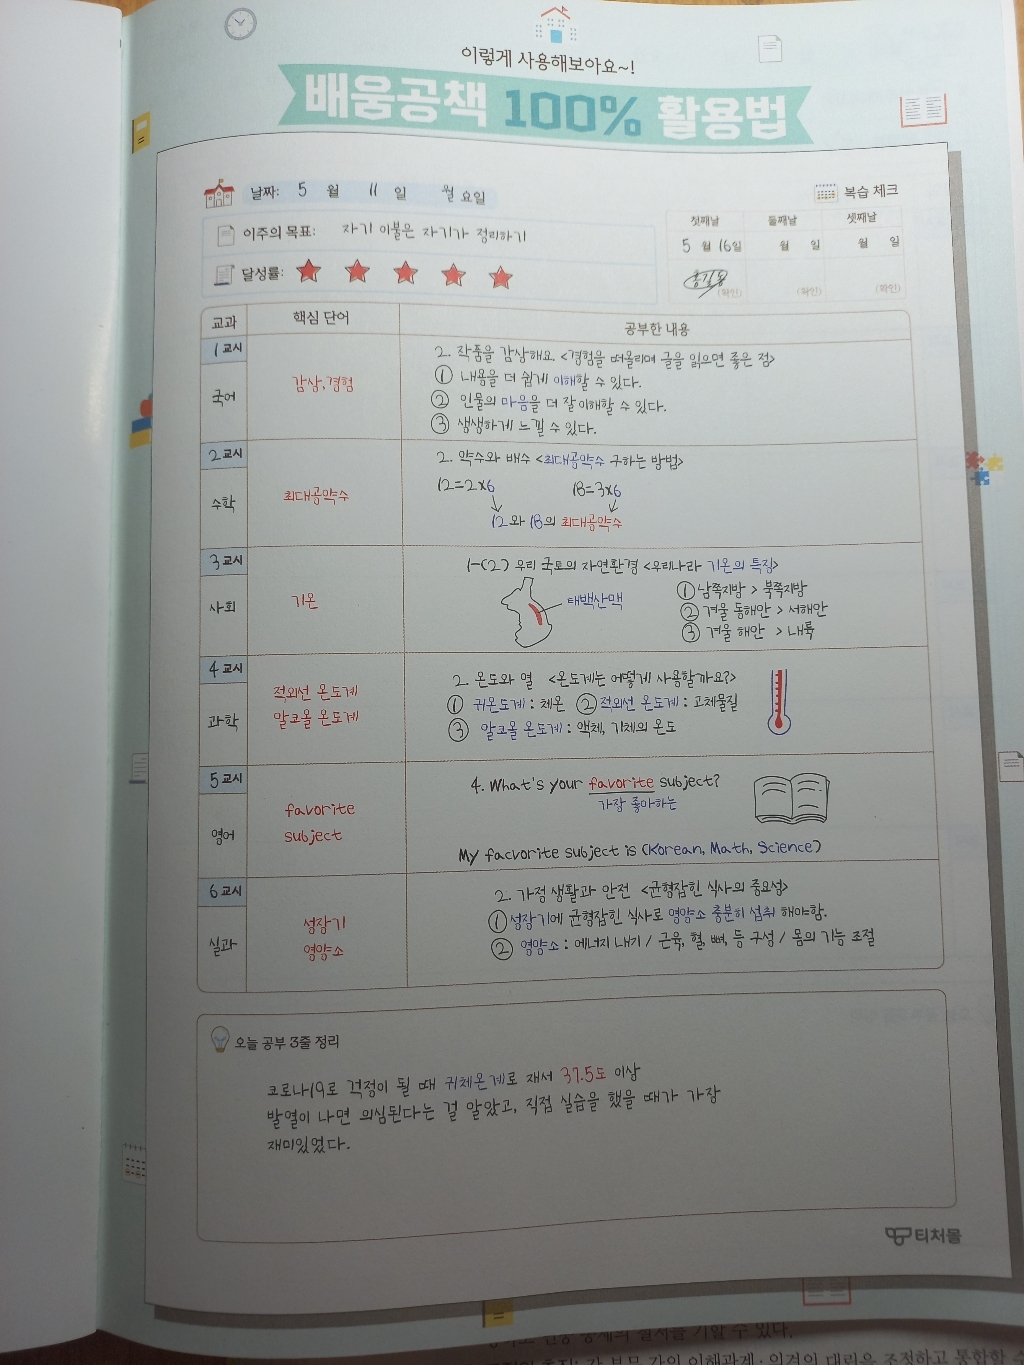 이렇게 사용해보아요~!
배움공책 100% 활용법
날짜: 5 월 11 일 월 요일
복습 체크
이주의 목표: 자기 이불은 자기가 정리하기
달성률:
첫째날 둘째날 셋째날
5 월 16일 월 일 월 일
홍길동 (확인) (확인) (확인)
교과 핵심 단어 공부한 내용
1교시
국어
감상, 경험
2. 작품을 감상해요. <경험을 떠올리며 글을 읽으면 좋은 점>
① 내용을 더 쉽게 이해할 수 있다.
② 인물의 마음을 더 잘 이해할 수 있다.
③ 생생하게 느낄 수 있다.
2교시
수학
최대공약수
2. 약수와 배수 <최대공약수 구하는 방법>
12=2×6 18=3×6
12와 18의 최대공약수
3교시
사회
기온
1-(2) 우리 국토의 자연환경 <우리나라 기온의 특징>
태백산맥
① 남쪽지방 > 북쪽지방
② 겨울 동해안 > 서해안
③ 겨울 해안 > 내륙
4교시
과학
적외선 온도계
알코올 온도계
2. 온도와 열 <온도계는 어떻게 사용할까요?>
① 귀온도계 : 체온 ② 적외선 온도계 : 고체물질
③ 알코올 온도계 : 액체, 기체의 온도
5교시
영어
favorite
subject
4. What's your favorite subject?
가장 좋아하는
My facvorite subject is (Korean, Math, Science)
6교시
실과
성장기
영양소
2. 가정 생활과 안전 <균형잡힌 식사의 중요성>
① 성장기에 균형잡힌 식사로 영양소 충분히 섭취 해야함.
② 영양소 : 에너지 내기 / 근육, 혈, 뼈, 등 구성 / 몸의 기능 조절
오늘 공부 3줄 정리
코로나19로 걱정이 될 때 귀체온계로 재서 37.5도 이상
발열이 나면 의심된다는 걸 알았고, 직접 실습을 했을 때가 가장
재미있었다.
티처몰